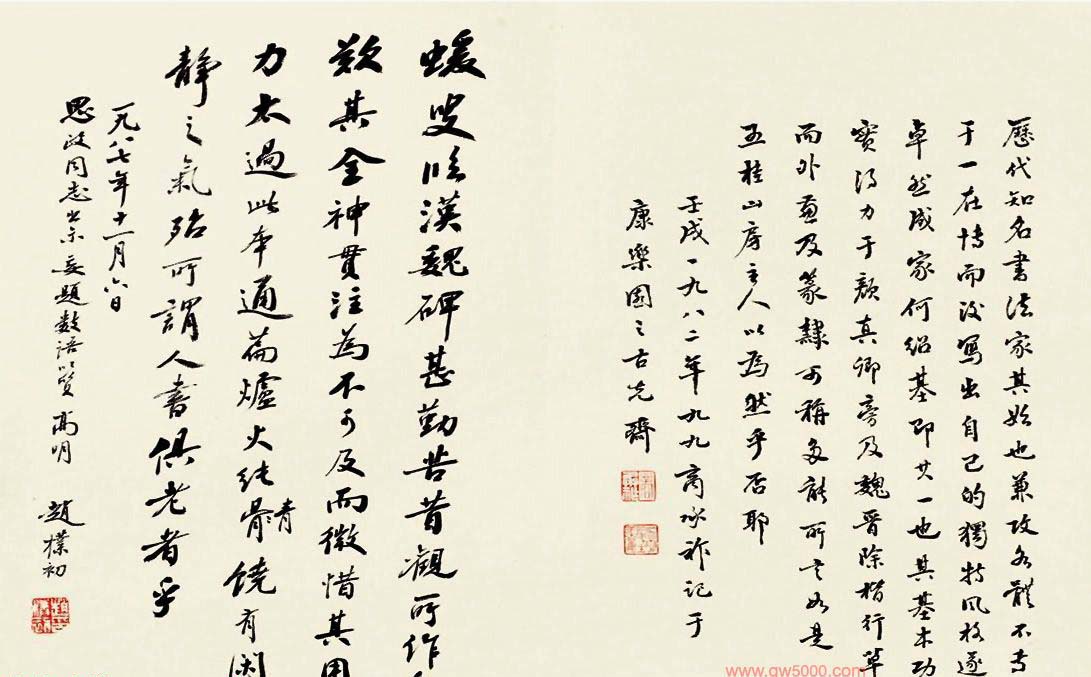 歷代知名書法家其始也兼攻各體不專
于一在博而後寫出自己的獨特风格遂
卓然成家何紹基即其一也其基本功
實得力于顏真卿旁及魏晉除楷行草
而外兼及篆隸可稱多能所言如是
五桂山房主人以為然乎否耶
壬戌一九八二年九九商承祚記于
康樂園之古先齋
蝯叟臨漢魏碑甚勤苦昔觀所作
歎其全神貫注為不可及而微惜其用
力太過此本通篇爐火純青饒有閑
靜之氣殆所謂人書俱老者乎
一九八七年十一月六日
思政同志出示委題數語以質高明
趙樸初
www.gw5000.com